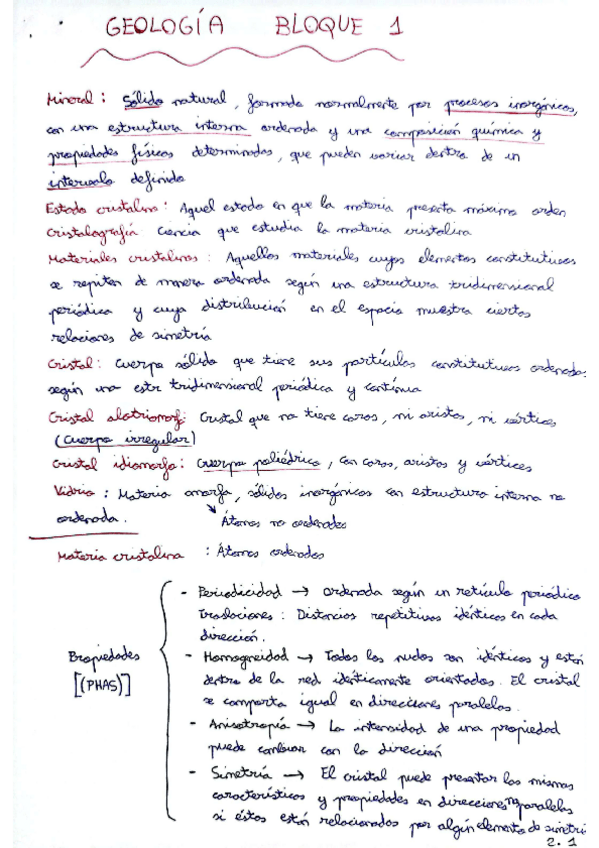 GEOLOGÍA BLOQUE 1
Mineral: Sólido natural, formado normalmente por procesos inorgánicos,
con una estructura interna ordenada y una composición química y
propiedades físicas determinadas, que pueden variar dentro de un
intervalo definido
Estado cristalino: Aquel estado en que la materia presenta máximo orden
Cristalografía Ciencia que estudia la materia cristalina
Materiales cristalinos: Aquellos materiales cuyos elementos constitutivos
se repiten de manera ordenada según una estructura tridimensional
periódica y cuya distribución en el espacio muestra ciertas
relaciones de simetría
Cristal: Cuerpo sólido que tiene sus partículas constitutivas ordenadas
según una estr tridimensional periódica y continua
Cristal alotriomorf: Cristal que no tiene caras, ni aristas, ni vértices
(Cuerpo irregular)
Cristal idiomorfo: Cuerpo poliédrico, con caras, aristas y vértices
Vidrio: Materia amorfa, sólidos inorgánicos con estructura interna no
ordenada. Átomos no ordenados
Materia cristalina : Átomos ordenados
Propiedades
[(PHAS)]
- Periodicidad → Ordenada según un retículo periódico
Traslaciones: Distancias repetitivas idénticas en cada
dirección.
- Homogeneidad → Todos los nudos son idénticos y están
dentro de la red idénticamente orientados. El cristal
se comporta igual en direcciones paralelas.
- Anisotropía → La intensidad de una propiedad
puede cambiar con la dirección
- Simetría → El cristal puede presentar las mismas
características y propiedades en direcciones no paralelas
si éstas están relacionadas por algún elemento de simetrí
2.1